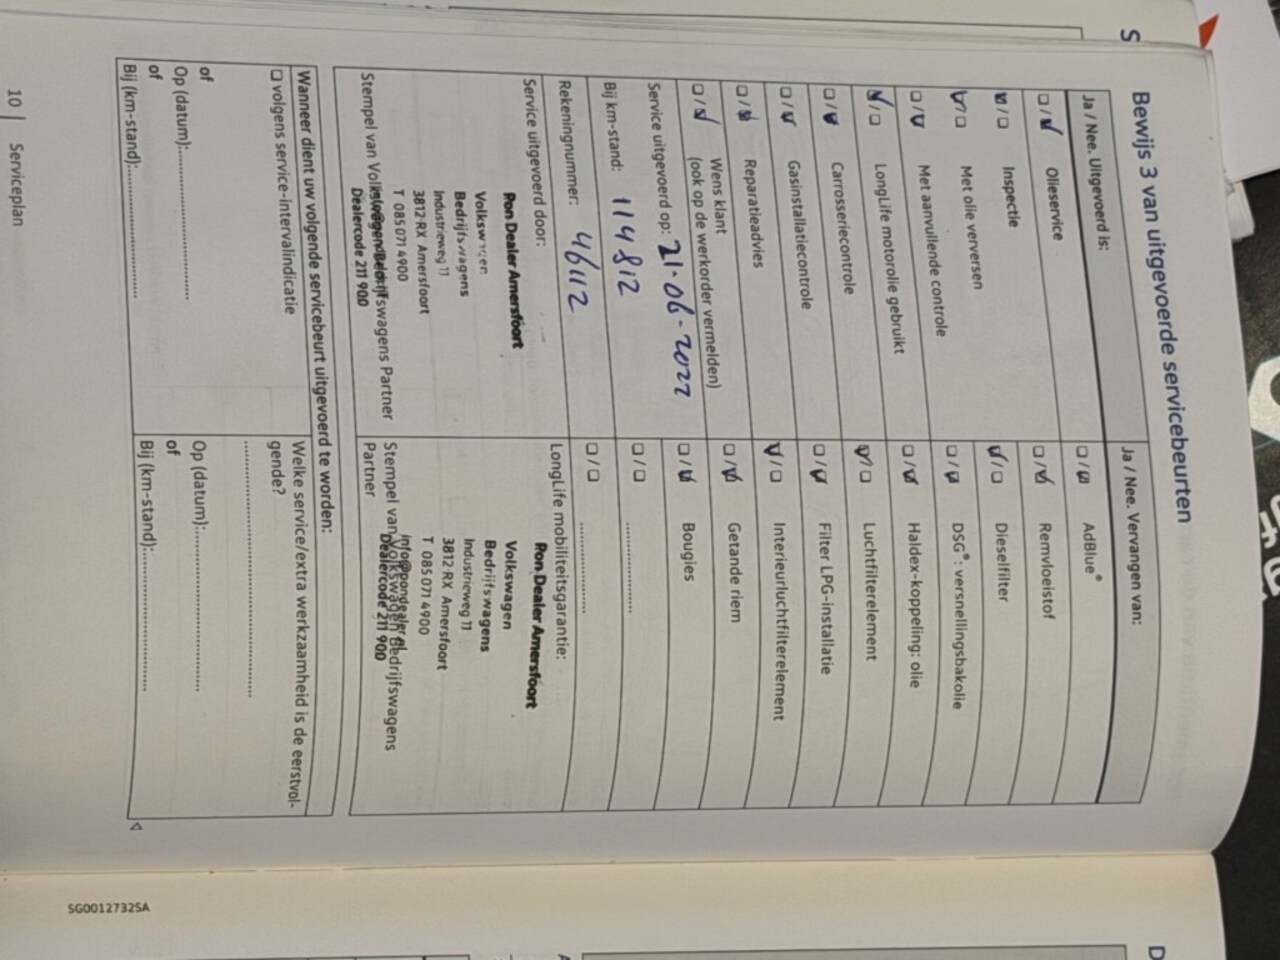 Bewijs 3 van uitgevoerde servicebeurten
Ja / Nee. Uitgevoerd is:
Olieservice
Inspectie
Met olie verversen
Met aanvullende controle
LongLife motorolie gebruikt
Carrosseriecontrole
Gasinstallatiecontrole
Reparatieadvies
Wens klant
(ook op de werkorder vermelden)
Service uitgevoerd op: 21-06-2022
Bij km-stand: 114812
Rekeningnummer: 46112
Service uitgevoerd door:
Pon Dealer Amersfoort
Volkswagen
Bedrijfswagens
Industrieweg 11
3812 RX Amersfoort
T 085 071 4900
Stempel van Volkswagen Bedrijfswagens Partner
Dealercode 211 900
Ja / Nee. Vervangen van:
AdBlue®
Remvloeistof
Dieselfilter
DSG®: versnellingsbakolie
Haldex-koppeling: olie
Luchtfilterelement
Filter LPG-installatie
Interieurluchtfilterelement
Getande riem
Bougies
LongLife mobiliteitsgarantie:
Pon Dealer Amersfoort
Volkswagen
Bedrijfswagens
Industrieweg 11
3812 RX Amersfoort
T 085 071 4900
info@pondealer.nl
Stempel van Volkswagen Bedrijfswagens
Partner
Dealercode 211 900
Wanneer dient uw volgende servicebeurt uitgevoerd te worden:
volgens service-intervalindicatie
of
Op (datum):
of
Bij (km-stand):
Welke service/extra werkzaamheid is de eerstvol-
gende?
Op (datum):
of
Bij (km-stand):
10 | Serviceplan
SG0012732SA
S
D
A